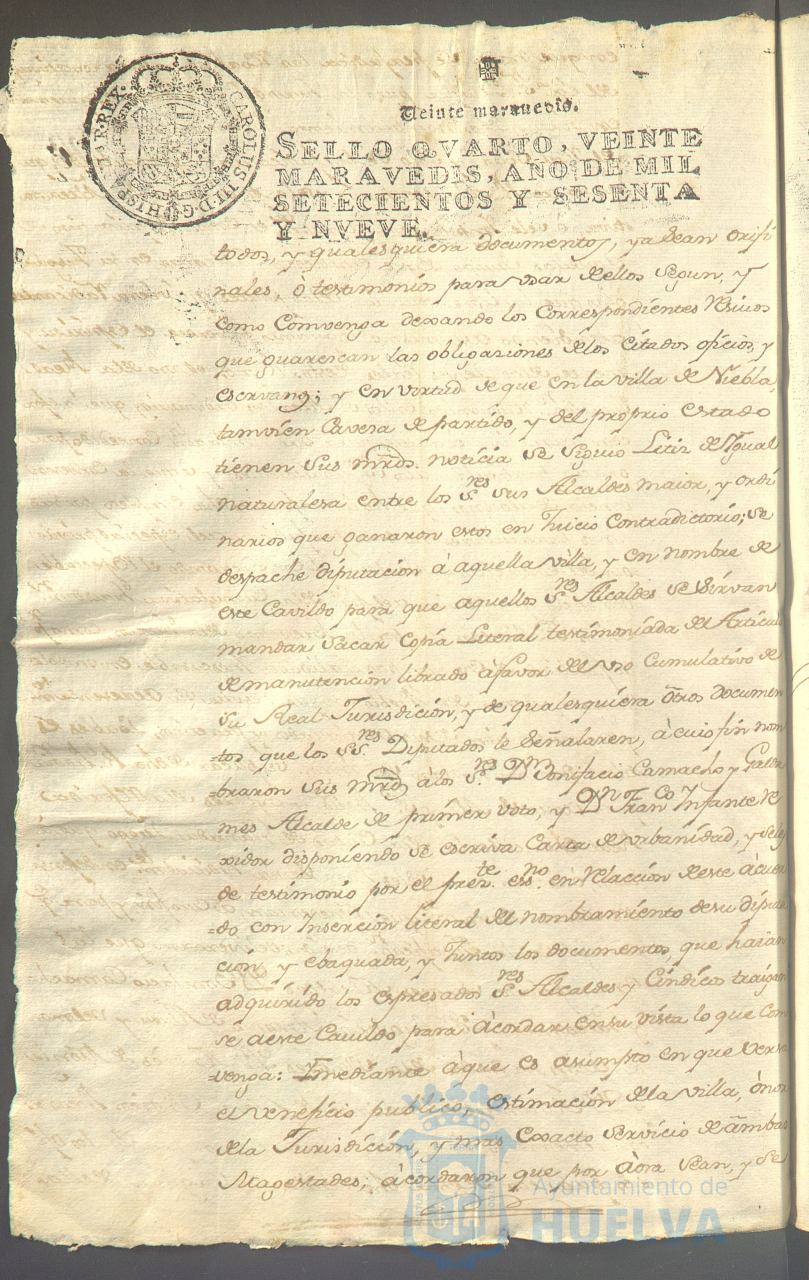 CAROLUS III D.G. HISP
IAR. REX.
Veinte maravedis.
SELLO QVARTO, VEINTE
MARAVEDIS, AÑO DE MIL
SETECIENTOS Y SESENTA
Y NVEVE.
todos, y qualesquiera documentos, ya sean oriji
nales, ò testimonios para usar de ellos segun, y
como Combenga dexando los Correspondientes resivos
que guarescan las obligaziones de los citados oficios, y
escrvanos; y en virtud de que en la villa de Niebla,
tamvien Cavesa de partido, y del proprio estado
tienen sus mrds. noticia se siguió Litis de Ygual
naturalesa entre los Sres. sus Alcaldes maior, y ordi
narios que ganaron estos en Juicio Contradictorio; se
despache diputacion à aquella villa, y en nombre de
este Cavildo para que aquellos Sres. Alcaldes se sirvan
mandar sacar Copia Literal testimoniada del Articulo
de manutencion librado à favor del uso Cumulativo de
su Real Jurisdicion, y de qualesquiera otros documen
tos que los SSres. Diputados le señalaren, à cuio fin nom
braron sus mrds à los Sres. Dn Bonifacio Camacho y
mes Alcalde de primer voto, y Dn Franco Infante Re
xidor disponiendo se escriva Carta de urbanidad, y se le
de testimonio por el prete. esno. en relaccion de este àcuer
do con Insercion literal del nombramiento de su diputa
cion, y ebaquada, y Juntos los documentos, que haian
adquirido los expresados Sres. Alcaldes y Cindicos traigan
se a este Cavildo para àcordar en su vista lo que Com
venga: Ymediante à que es asumpto en que versa
el veneficio publico, estimacion de la villa, ònor
de la Jurisdiccion, y mas Exacto servicio de ambas
Magestades; àcordaron que por àora sean, y se
Ayuntamiento de
HUELVA